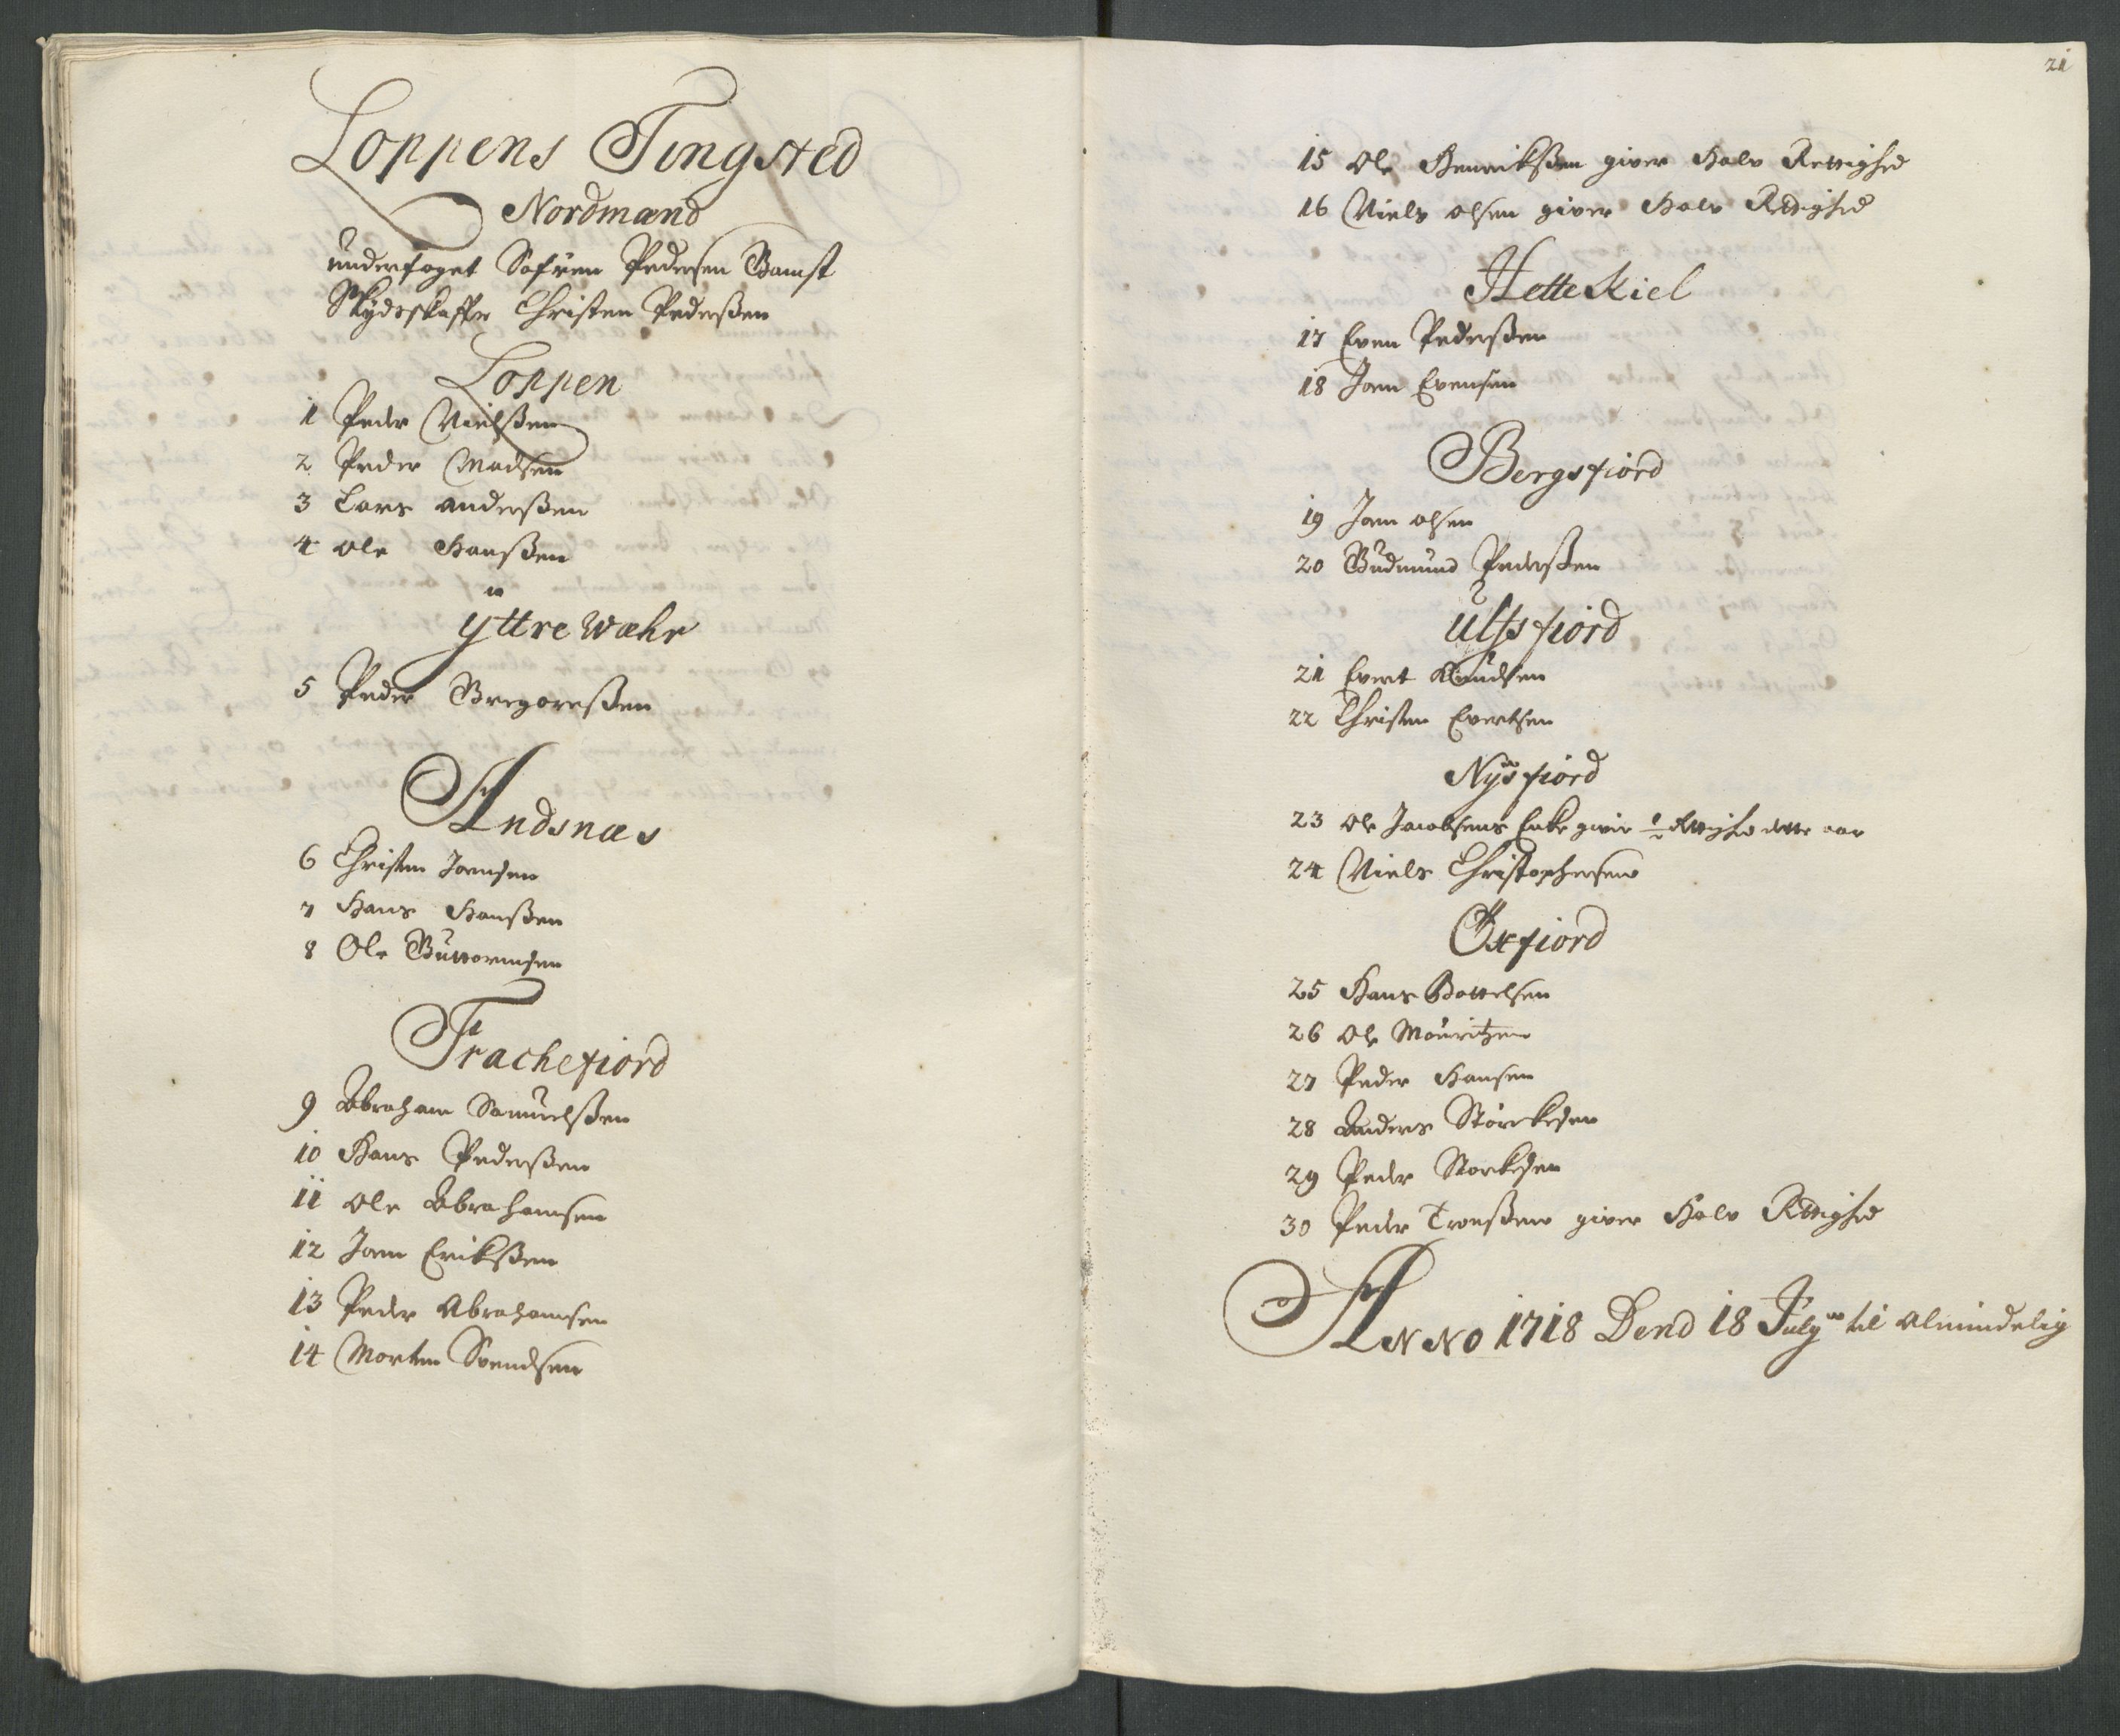 Loppens Tingsted
Nordmænd
underfoget Søfren Pedersen Gamst
Skydsskaffer Christen Pederßen
Loppen
1 Peder Nielßen
2 Peder Madsen
3 Lars anderßen
4 Ole Hanßen
ÿttre Wæhr
5 Peder Gregoreßen
Andsnæs
6 Christen Joensen
7 Hans Hanßen
8 Ole Guttormsen
Frachefiord
9 Abraham Samuelßen
10 Hans Pederßen
11 Ole Abrahamsen
12 Joen Erikßen
13 Peder Abrahamsen
14 Morten Svendsen
21
15 Ole Henrikßen giver Halv Rettighed
16 Niels olsen giver Halv Rettighed
Hettekiel
17 Even Pederßen
18 Joen Evensen
Bergsfiord
19 Joen olsen
20 Gudmund Pederßen
Ulfsfiord
21 Evert Knudsen
22 Christen Evertsen
Nÿsfiord
23 Ole Jacobsens Enke giver ½ Rettighed dette aar
24 Niels Christophersen
Öxfiord
25 Hans Bottelsen
26 Ole Mouritzen
27 Peder Hansen
28 Anders Störckesen
29 Peder Storkesen
30 Peder Troelßen giver Halv Rettighed
ANNO 1718 Dend 18 Julÿ til Almindelig